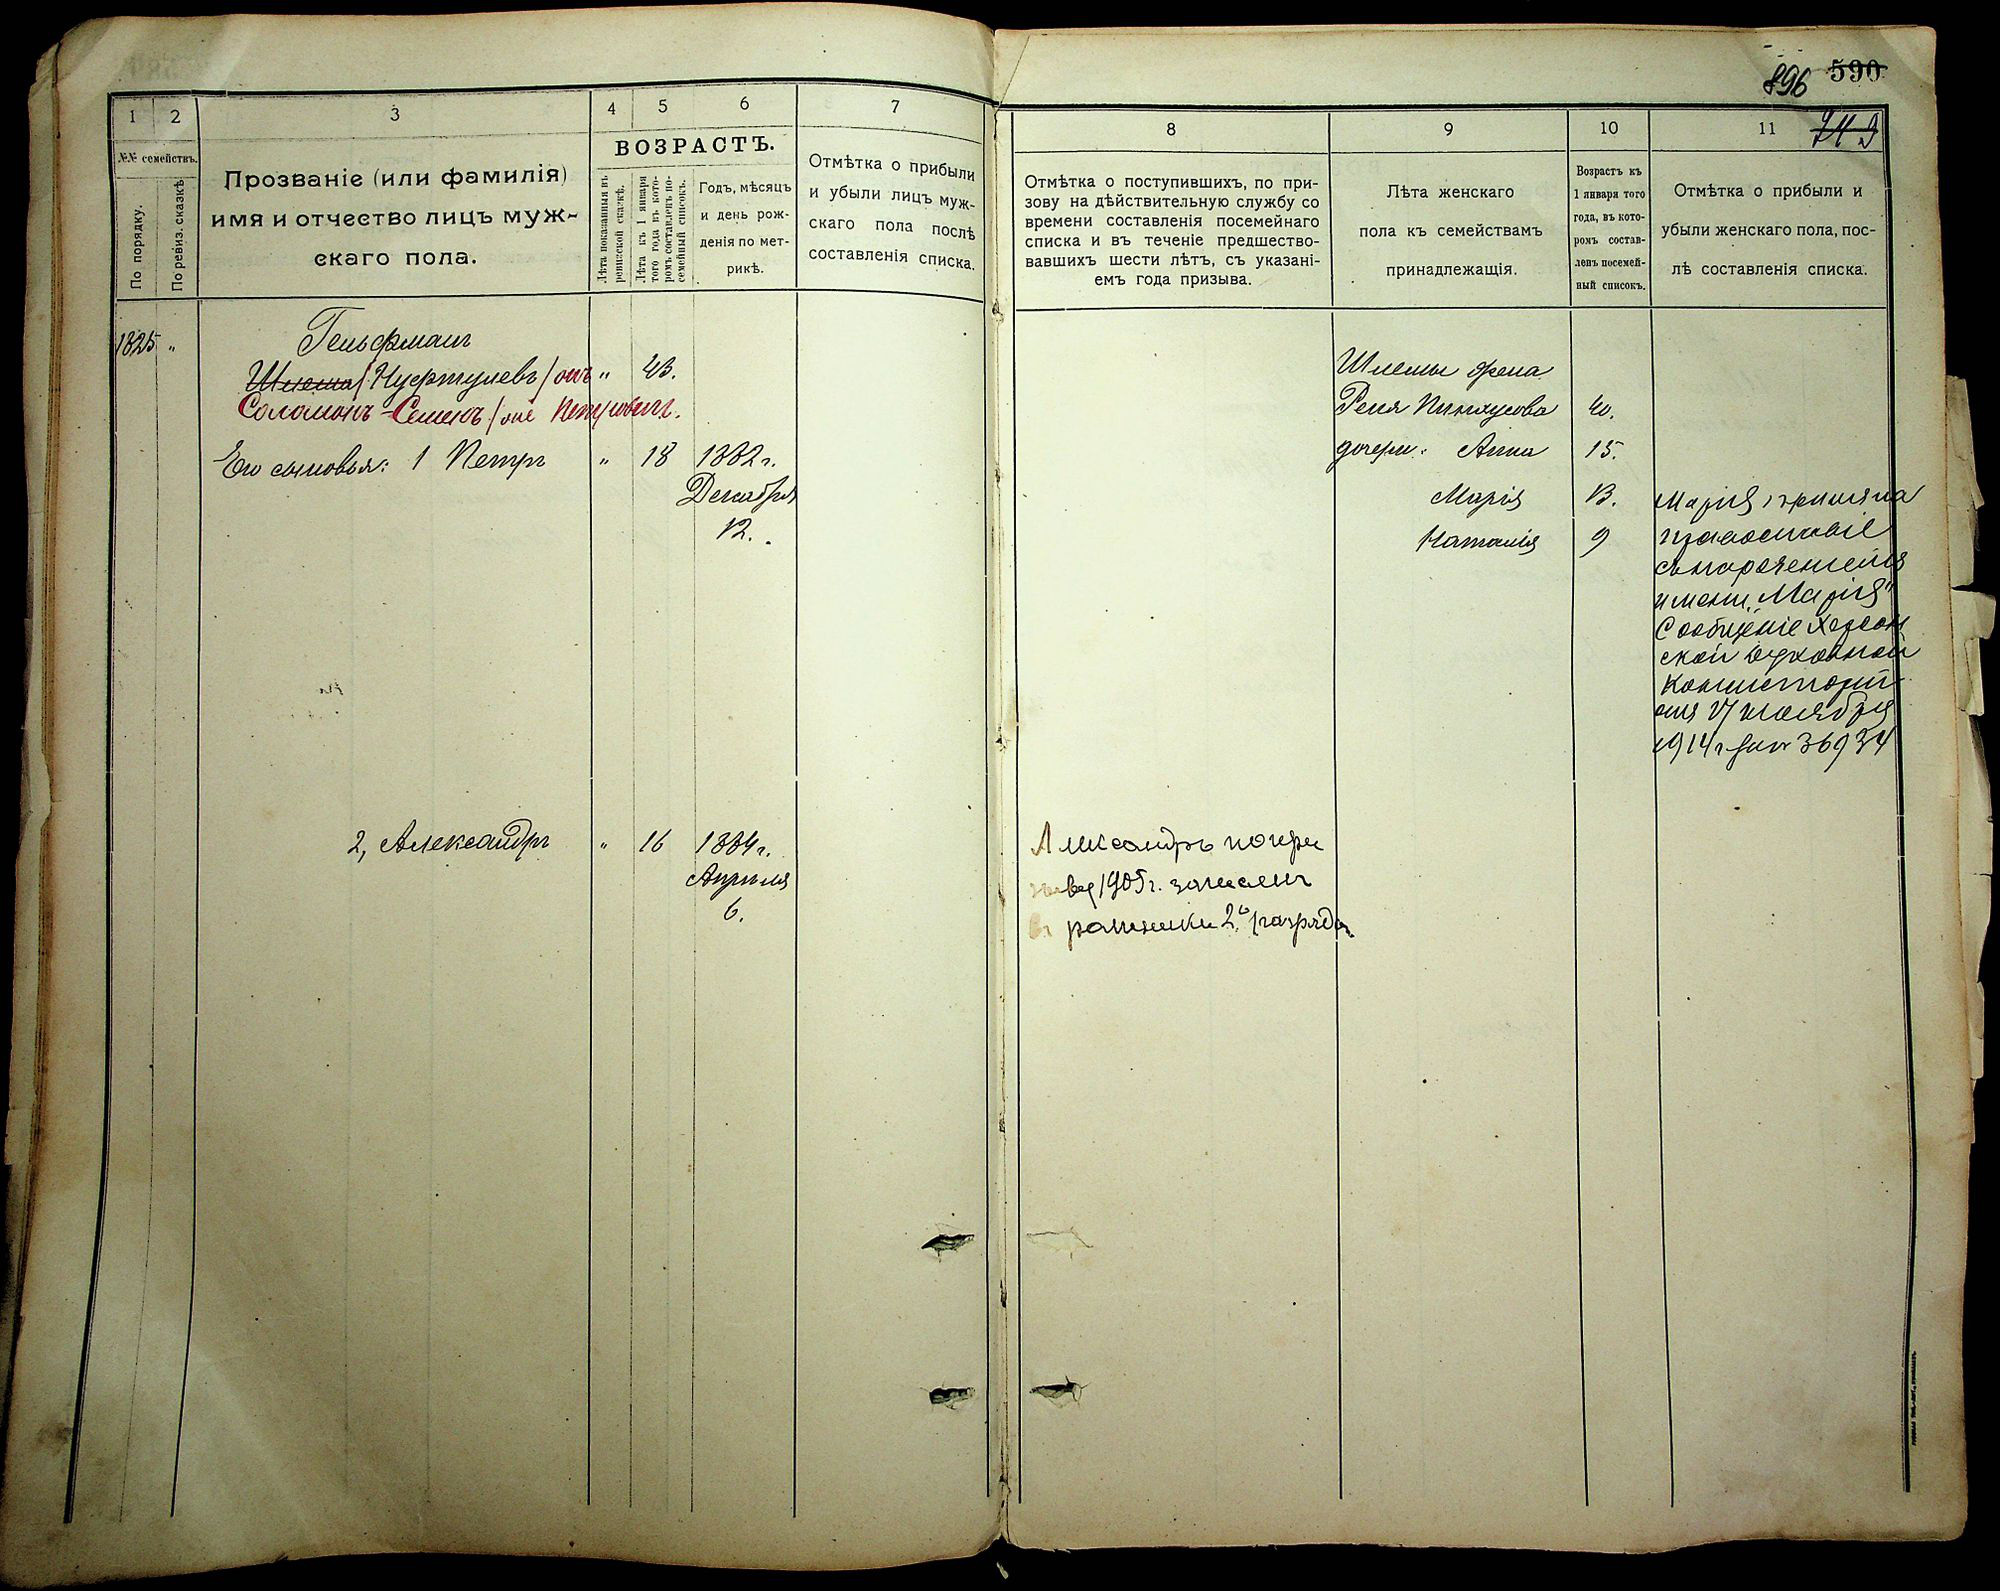 896 590
743
1 2 3 4 5 6 7
№№ семействъ.
По порядку.
По ревиз. сказкѣ
Прозваніе (или фамилія)
имя и отчество лицъ муж-
скаго пола.
ВОЗРАСТЪ.
Лѣта показанныя въ
ревизской сказкѣ.
Лѣта къ 1 января
того года въ кото-
ромъ составленъ по-
семейный списокъ.
Годъ, мѣсяцъ
и день рож-
денія по мет-
рикѣ.
Отмѣтка о прибыли
и убыли лицъ муж-
скаго пола послѣ
составленія списка.
1825 „
Гельфман
Шлема / / онъ „ 43.
Соломонъ-Семенъ / онъ Петрович.
Его сыновья: 1 Петръ „ 18 1882 г.
Декабря
12.
2, Александръ „ 16 1884 г.
Апрѣля
6.
8 9 10 11
Отмѣтка о поступившихъ, по при-
зову на дѣйствительную службу со
времени составленія посемейнаго
списка и въ теченіе предшество-
вавшихъ шести лѣтъ, съ указані-
емъ года призыва.
Лѣта женскаго
пола къ семействамъ
принадлежащія.
Возрастъ къ
1 января того
года, въ кото-
ромъ состав-
ленъ посемей-
ный списокъ.
Отмѣтка о прибыли и
убыли женскаго пола, пос-
лѣ составленія списка.
Шлемы жена
Реня Пинхусова 40.
дочери: Анна 15.
Марія 13.
Наталія 9
Марія приняла
православіе
съ нареченіемъ
имени „Марія"
Сообщеніе Херсон
ской Духовной
Консисторіи
отъ 17 ноября
1914 г за № 36934
Александръ по
1905 г. зачислен
въ ратники 2 разряда